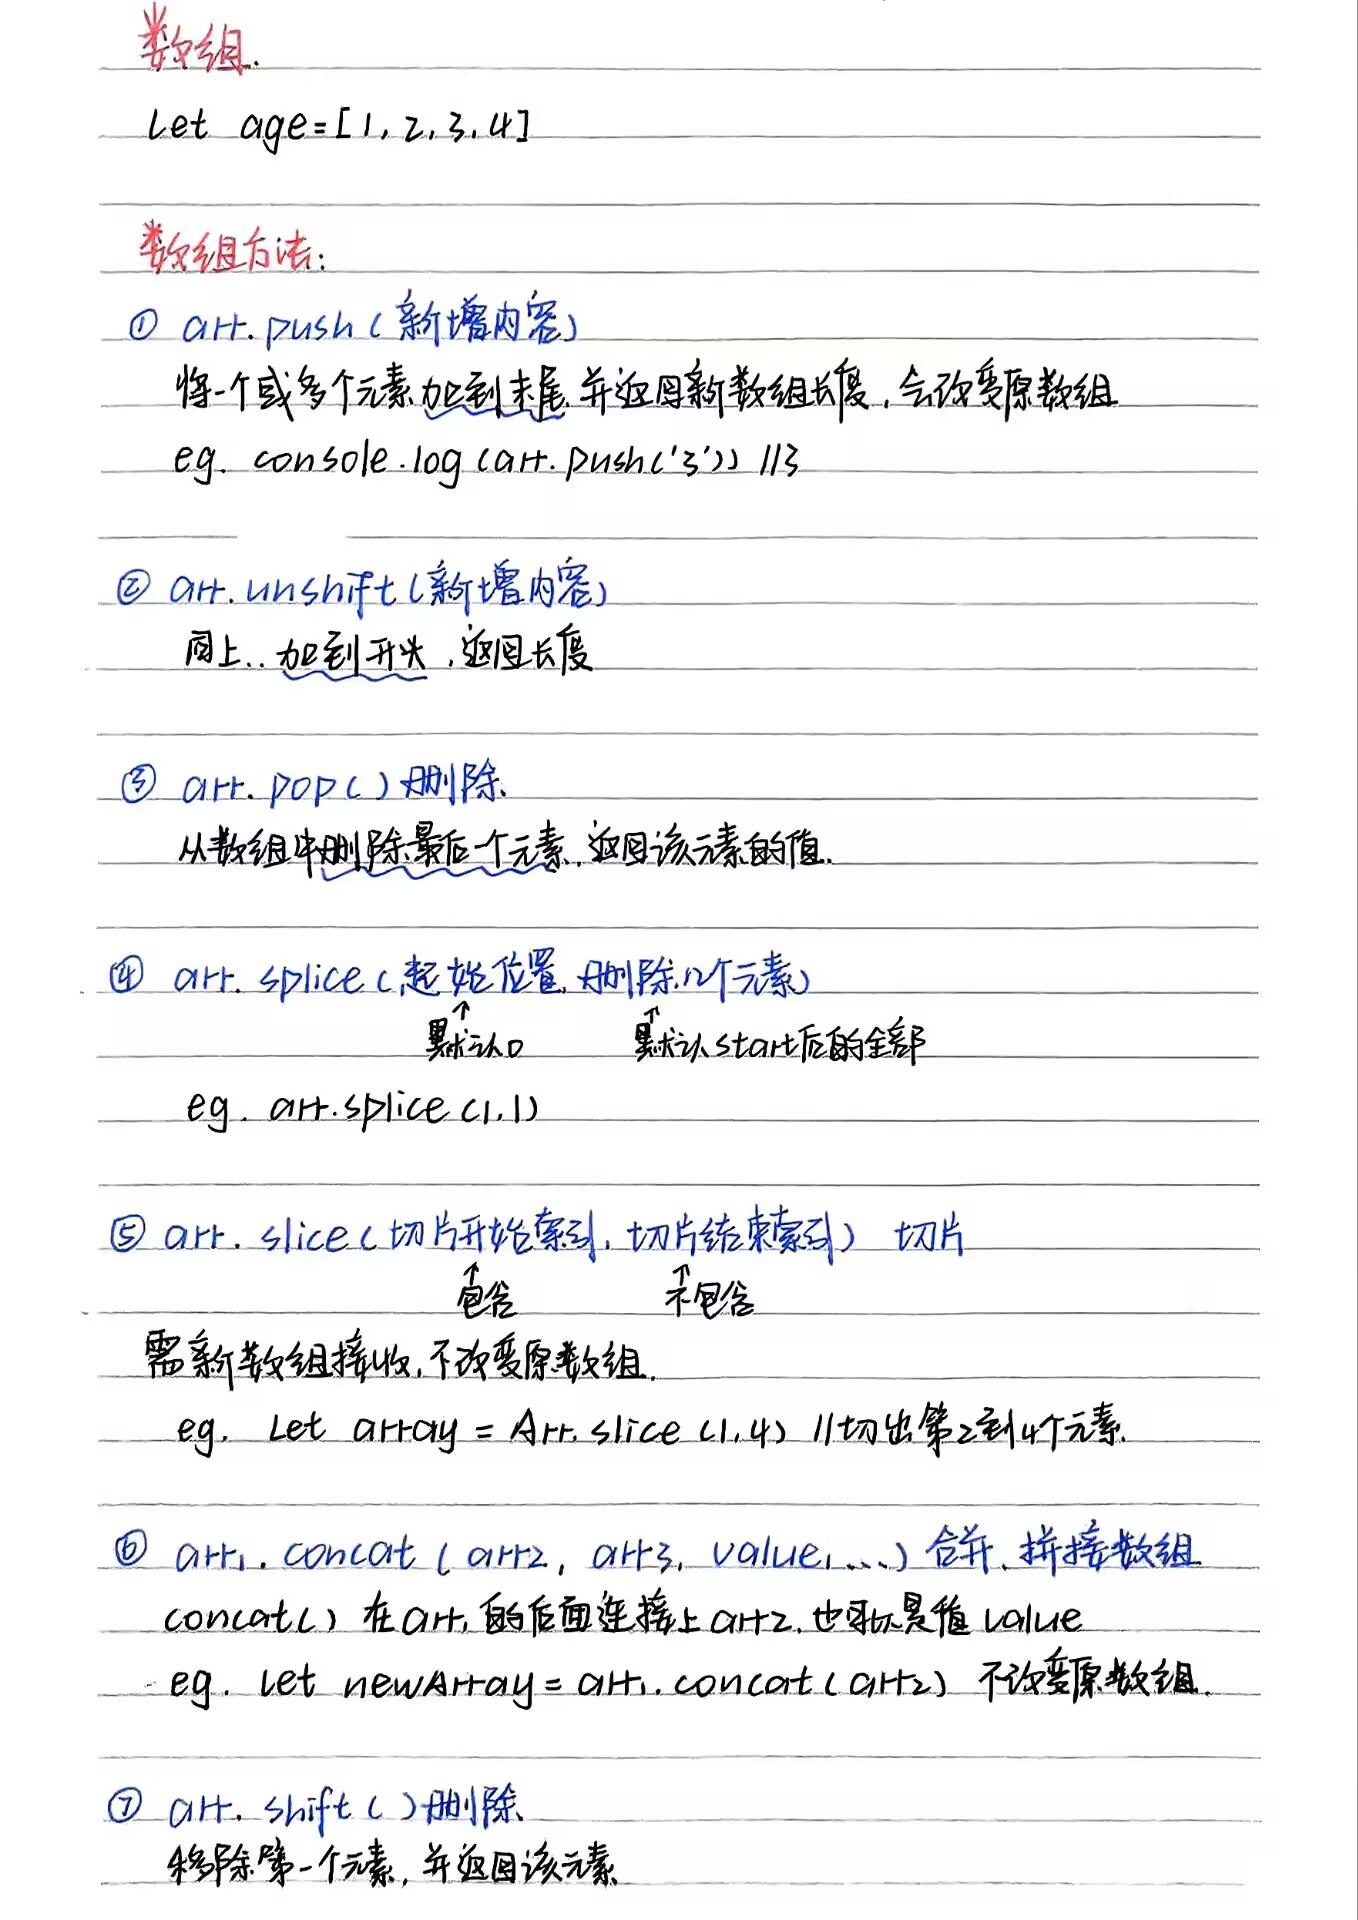 数组.
let age=[1,2,3,4]
数组方法:
① arr.push(新增内容)
将一个或多个元素加到末尾,并返回新数组长度,会改变原数组
eg. console.log(arr.push('3')) //3
② arr.unshift(新增内容)
同上..加到开头,返回长度
③ arr.pop()删除.
从数组中删除最后一个元素,返回该元素的值.
④ arr.splice(起始位置,删除几个元素)
↑默认0 ↑默认start后的全部
eg. arr.splice(1,1)
⑤ arr.slice(切片开始索引,切片结束索引) 切片
↑包含 ↑不包含
需新数组接收,不改变原数组.
eg. Let array = Arr.slice(1,4) //切出第2到4个元素.
⑥ arr1.concat(arr2, arr3, value, ...)合并、拼接数组
concat()在arr1的后面连接上arr2.也可以是值value
eg. let newArray=arr1.concat(arr2) 不改变原数组.
⑦ arr.shift()删除.
移除第一个元素,并返回该元素.